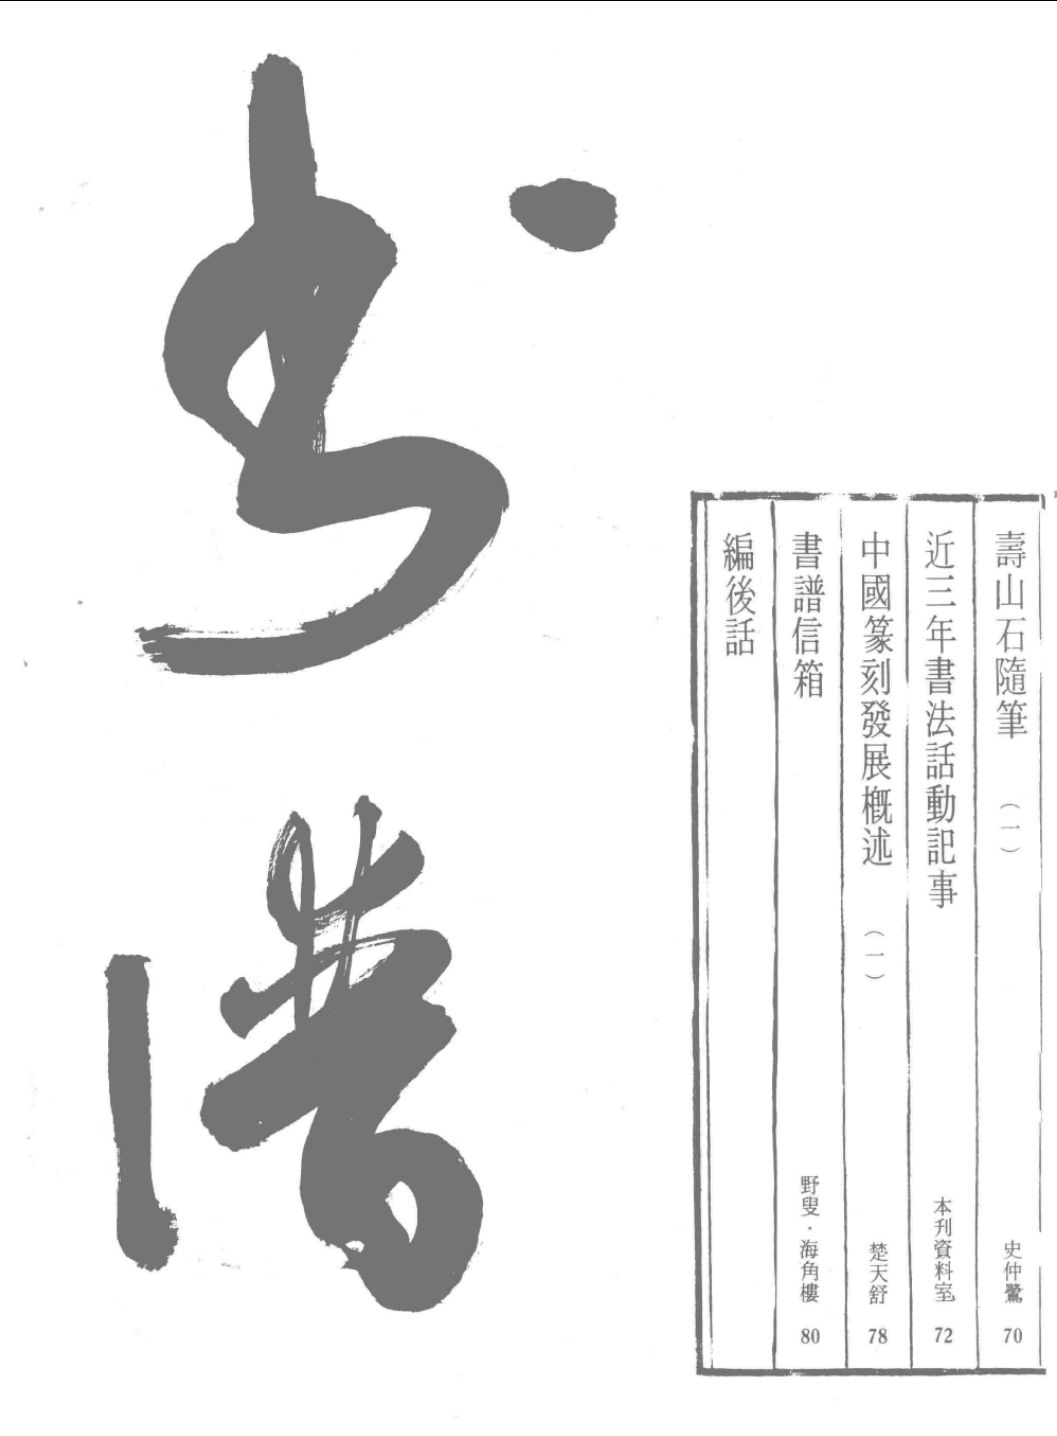 书谱
壽山石隨筆（一） 史仲鷺 70
近三年書法話動記事 本刋資料室 72
中國篆刻發展概述（一） 楚天舒 78
書譜信箱 野叟·海角樓 80
編後話